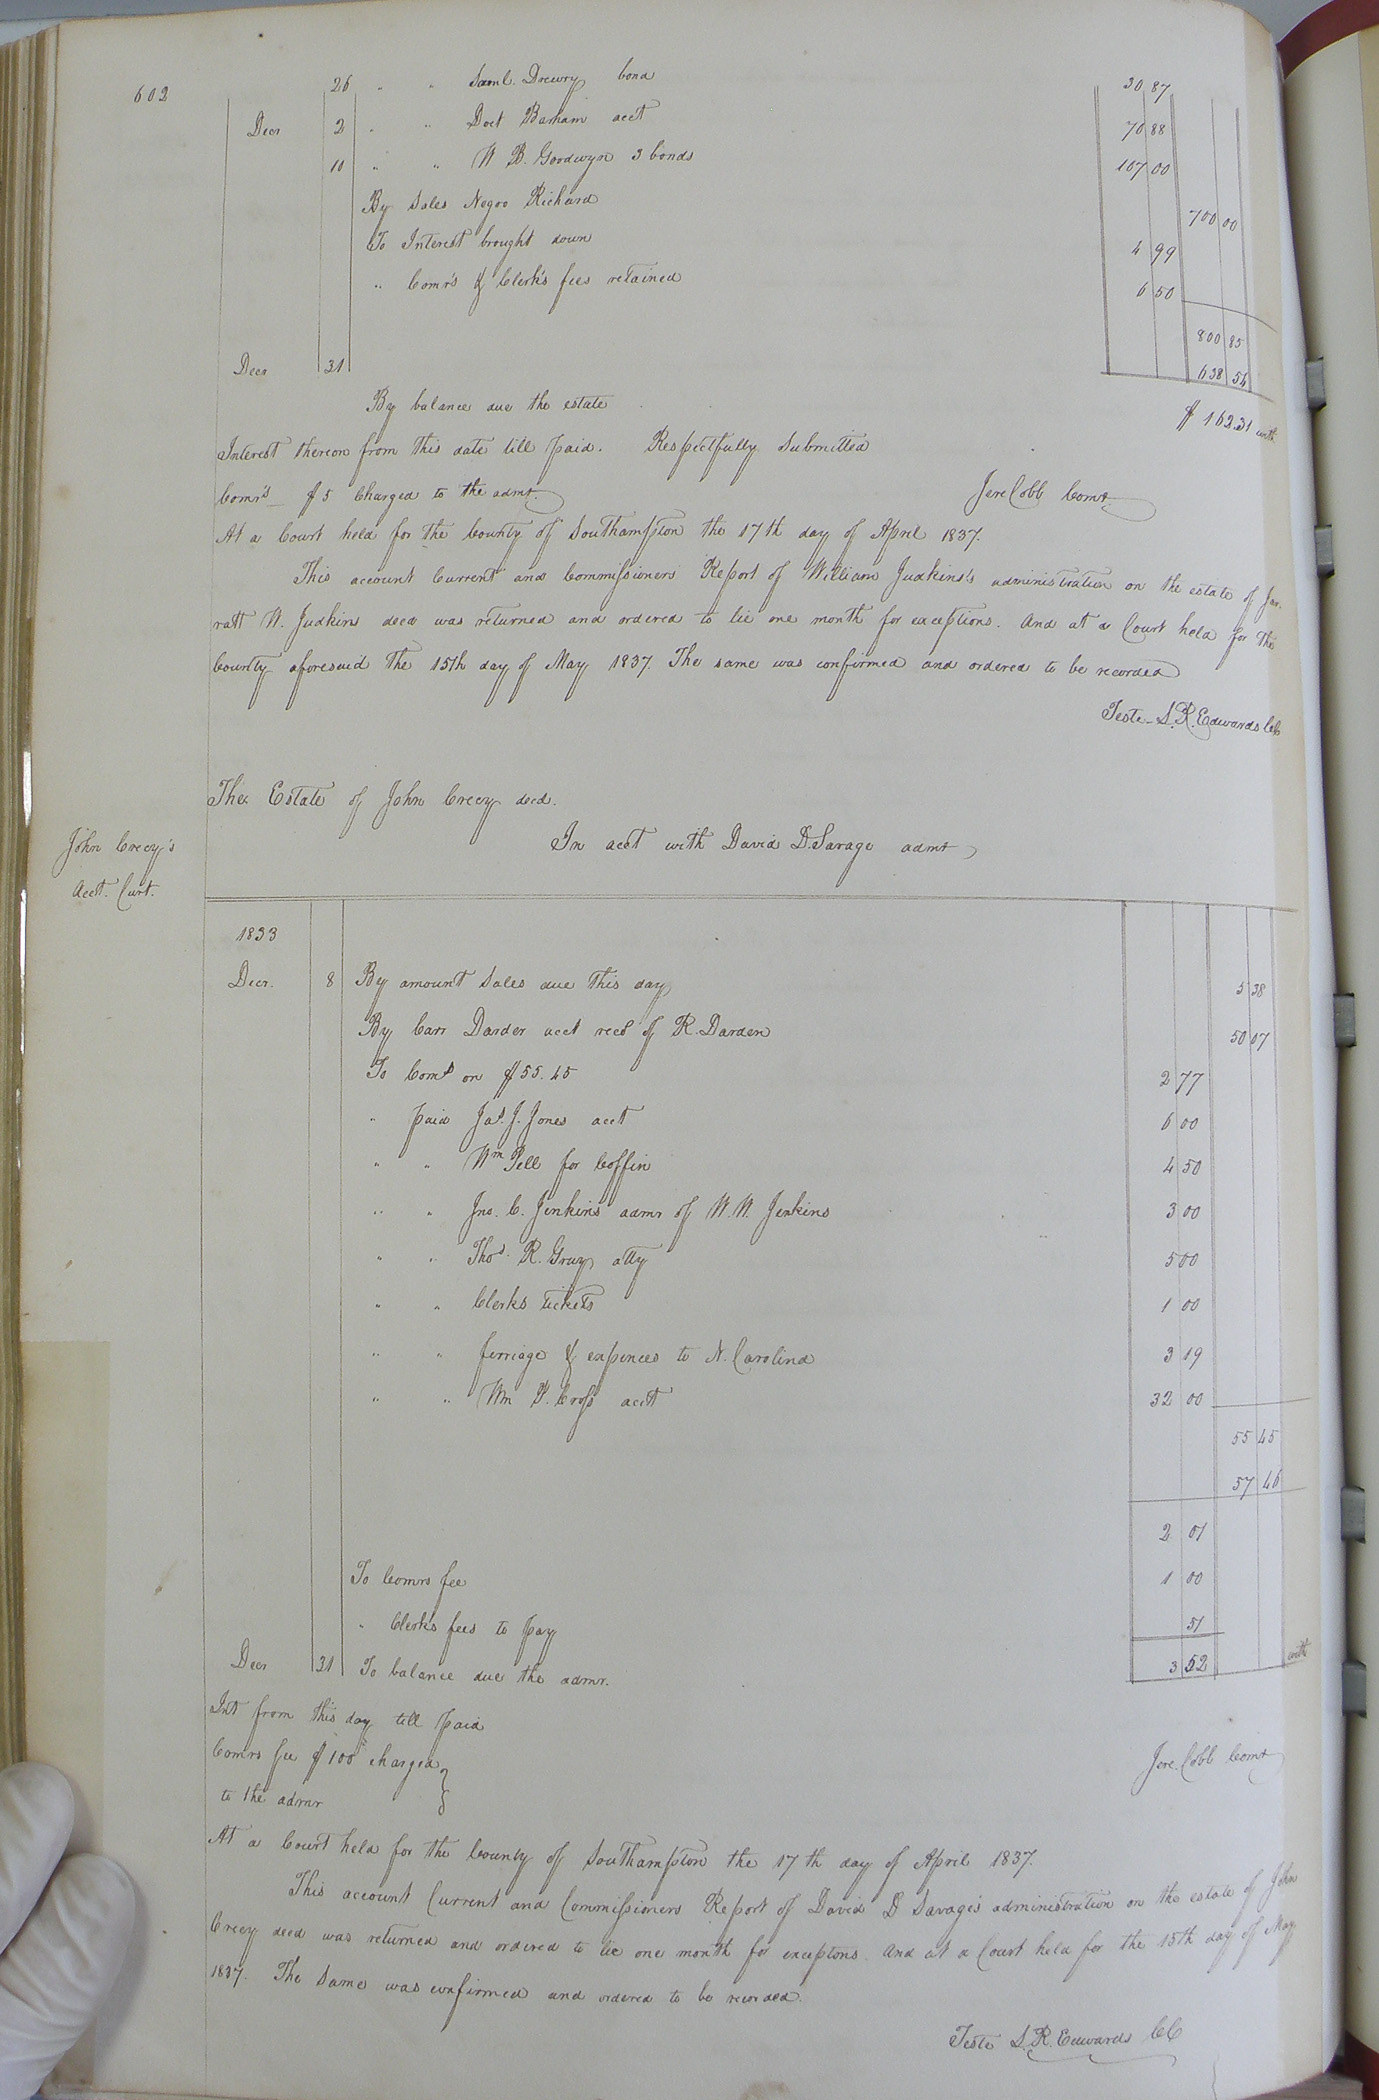 602
26 " " Saml. Drewry bond 30 87
Decr 2 " " Doct Barham acct 70 88
10 " " W B. Goodwyn 3 bonds 107 00
By Sales Negro Richard 700 00
To Interest brought down 4 99
" Comr's & Clerk's fees retained 6 50
800 85
Decr 31 638 54
By balance due the estate $162.31 with
Interest thereon from this date till paid. Respectfully Submitted
Comr's $5 Charged to the admr. Jere Cobb Comr
At a Court held for the County of Southampton the 17th day of April 1837.
This account Current and Commissioners Report of William Judkins's administration on the estate of Jar-
ratt W. Judkins decd was returned and ordered to lie one month for exceptions. And at a Court held for the
County aforesaid the 15th day of May 1837. The same was confirmed and ordered to be recorded
Teste S. R. Edwards Clk
The Estate of John Creey decd.
In acct with David D. Savage admr
John Creey's
Acct. Curt.
1833
Decr. 8 By amount Sales due this day 5 38
By Carr Darder acct recd of R. Darden 50 07
To Coms on $55.45 2 77
" paid Jas. J. Jones acct 6 00
" " Wm Pell for Coffin 4 50
" " Jno. C. Jenkins admr of W. W. Jenkins 3 00
" " Thos. R. Gray atty 5 00
" " Clerks tickets 1 00
" " ferriage & expences to N. Carolina 3 19
" " Wm P. Cross acct 32 00
55 45
57 46
2 01
To Comrs fee 1 00
" Clerks fees to pay 51
Decr 31 To balance due the admr. 3 52 with
Int from this day till paid
Comrs fee $1 00 charged
to the admr Jere. Cobb Comr
At a Court held for the County of Southampton the 17th day of April 1837.
This account Current and Commissioners Report of David D Savage's administration on the estate of John
Creey decd was returned and ordered to lie one month for exceptons. And at a Court held for the 15th day of May
1837. The Same was confirmed and ordered to be recorded.
Teste S. R. Edwards CC